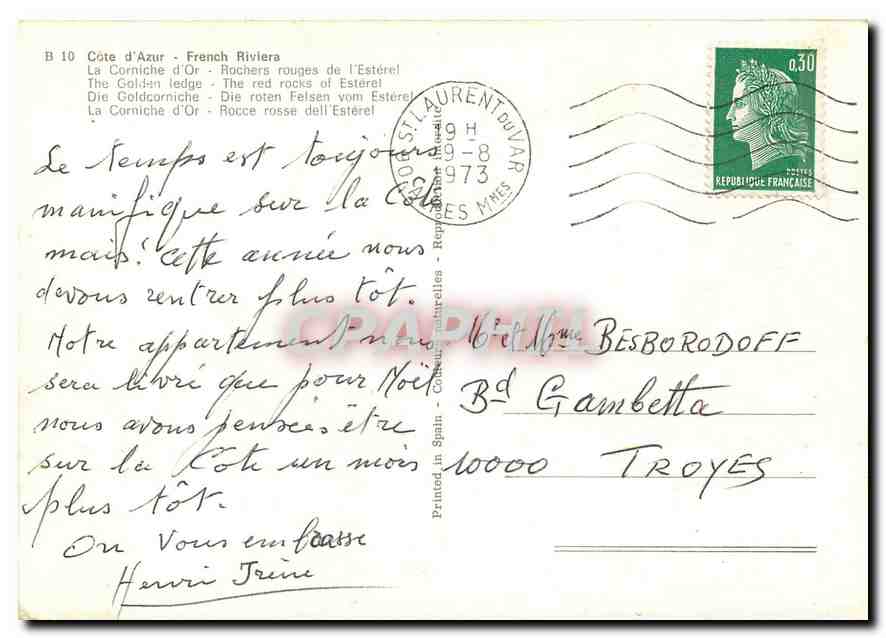 B 10 Côte d'Azur - French Riviera
La Corniche d'Or - Rochers rouges de l'Estérel
The Golden ledge - The red rocks of Estérel
Die Goldcorniche - Die roten Felsen vom Estérel
La Corniche d'Or - Rocce rosse dell'Estérel
Le temps est toujours
manifique sur la Cote
mais! cette année nous
devons rentrer plus tôt.
Notre appartement nous
sera livré que pour Noël
nous avons pensées être
sur la Cote un mois
plus tôt.
On vous embrasse
Henri Irène
Printed in Spain - Couleurs naturelles - Reproduction interdite
ST LAURENT DU VAR
19 H
9-8
1973
MNES
0,30
POSTES
REPUBLIQUE FRANÇAISE
Mr et Mme BESBORODOFF
Bd Gambetta
10000 TROYES
CPAPHIL